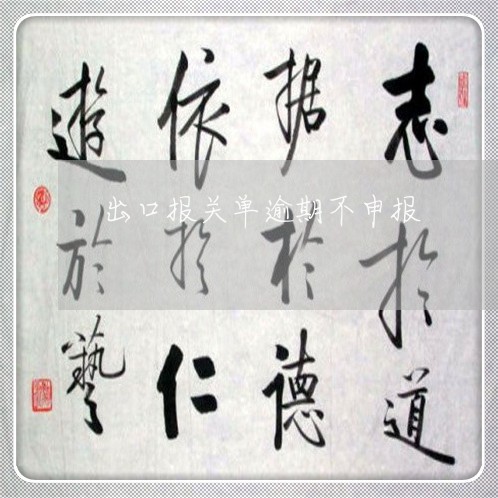 志於道
据於德
依於仁
遊於藝
出口报关单逾期不申报